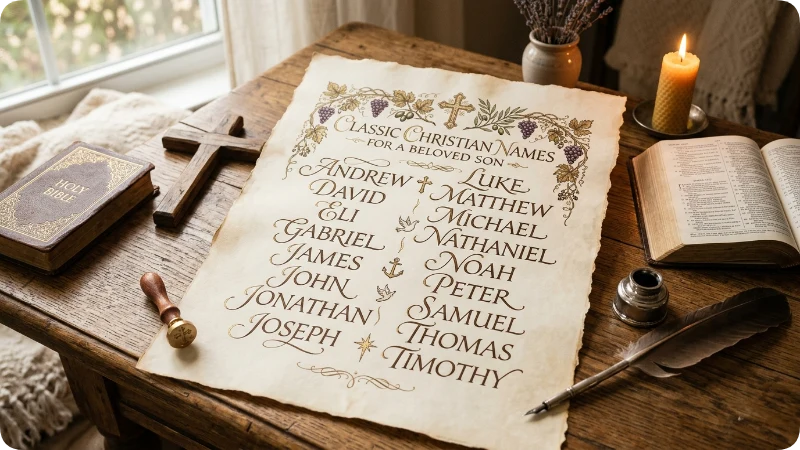 HOLY
BIBLE
CLASSIC CHRISTIAN NAMES
FOR A BELOVED SON
ANDREW
DAVID
ELI
GABRIEL
JAMES
JOHN
JONATHAN
JOSEPH
LUKE
MATTHEW
MICHAEL
NATHANIEL
NOAH
PETER
SAMUEL
THOMAS
TIMOTHY